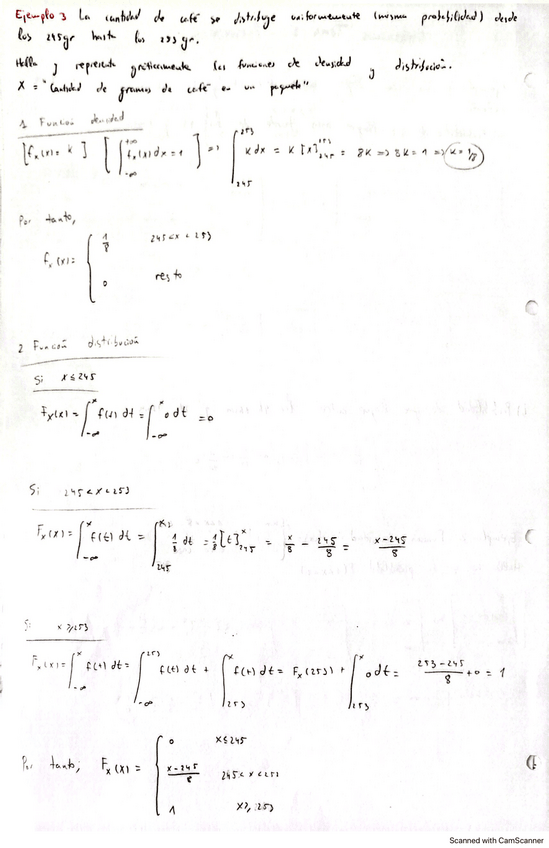 Ejemplo 3 La cantidad de café se distribuye uniformemente (misma probabilidad) desde
los 245gr hasta los 253 gr.
Halla y represente gráficamente las funciones de densidad y distribución.
X = "Cantidad de gramos de café en un paquete"
1 Función densidad
[fx(x) = k] [∫_{-∞}^{+∞} fx(x) dx = 1] => ∫_{245}^{253} k dx = k [x]_{245}^{253} = 8k => 8k = 1 => k = 1/8
Por tanto,
fx(x) = { 1/8 245 < x < 253
0 resto
2 Función distribución
Si x ≤ 245
Fx(x) = ∫_{-∞}^{x} f(t) dt = ∫_{-∞}^{x} 0 dt = 0
Si 245 < x < 253
Fx(x) = ∫_{-∞}^{x} f(t) dt = ∫_{245} 1/8 dt = 1/8 [t]_{245}^{x} = x/8 - 245/8 = x-245/8
Si x ≥ 253
Fx(x) = ∫_{-∞}^{x} f(t) dt = ∫_{-∞}^{253} f(t) dt + ∫_{253}^{x} f(t) dt = Fx(253) + ∫_{253}^{x} 0 dt = 253-245/8 + 0 = 1
Por tanto, Fx(x) = { 0 x ≤ 245
x-245/8 245 < x < 253
1 x ≥ 253
Scanned with CamScanner